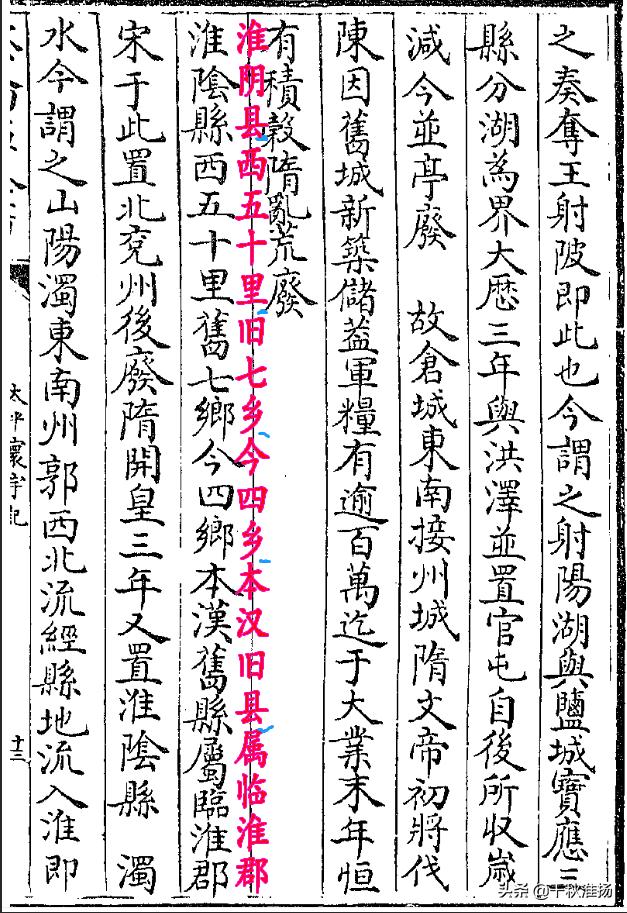 之奏奪王射陂即此也今謂之射陽湖與鹽城寶應三
縣分湖為界大歷三年與洪澤並置官屯自後所收歲
減今並亭廢 故倉城東南接州城隋文帝初將伐
陳因舊城新築儲蓋軍糧有逾百萬迄于大業末年恒
有積穀隋亂荒廢
淮阴县西五十里旧七乡今四乡本汉旧县属临淮郡
淮陰縣西五十里舊七鄉今四鄉本漢舊縣屬臨淮郡
宋于此置北兗州後廢隋開皇三年又置淮陰縣 濁
水今謂之山陽濁東南州郭西北流經縣地流入淮即
太平寰宇記
十三
头条 @千秋淮扬